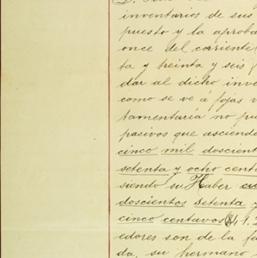 inventarios de sus
puesto y la aproba
once del corriente
ta y treinta y seis
dar al dicho inve
como se vé á fojas
tamentaría no pu
pasivos que asciend
cinco mil doscient
setenta y ocho cent
siendo su Haber
doscientos setenta y
cinco centavos $41.2
edores son de la fa
da, su hermano